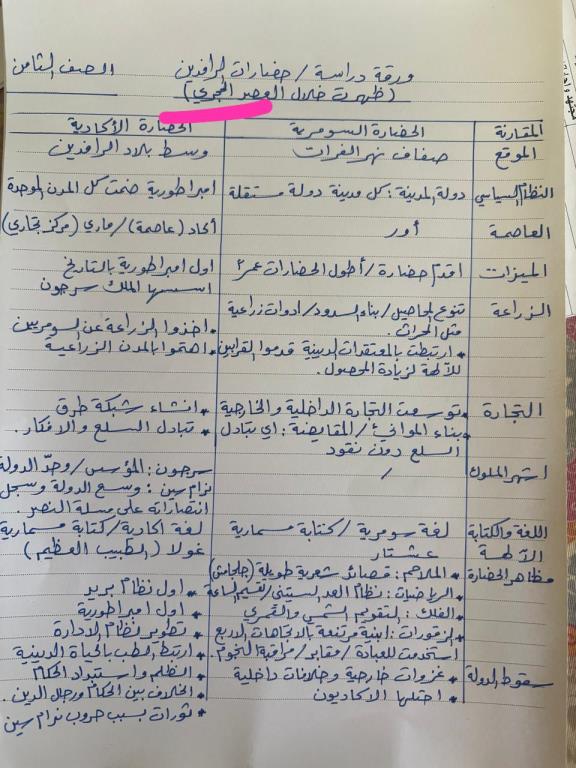 ورقة دراسة / حضارات الرافدين الصف الثامن
(ظهرت خلال العصر الحجري)
المقارنة الحضارة السومرية الحضارة الأكادية
الموقع ضفاف نهر الفرات وسط بلاد الرافدين
النظام السياسي دولة المدينة : كل مدينة دولة مستقلة امبراطورية ضمت كل المدن الموحدة
العاصمة أور أكاد (عاصمة) / ماري (مركز تجاري)
الميزات اقدم حضارة / أطول الحضارات عمراً اول امبراطورية بالتاريخ
اسسها الملك سرجون
الزراعة تنوع المحاصيل / بناء السدود / ادوات زراعية
مثل المحراث . • اخذوا الزراعة عن السومريين
• ارتبطت بالمعتقدات الدينية قدموا القرابين • اهتموا بالمدن الزراعية
للآلهة لزيادة المحصول .
التجارة • توسعت التجارة الداخلية والخارجية • انشاء شبكة طرق
• بناء الموانئ / المقايضة : اي تبادل • تبادل السلع والافكار .
السلع دون نقود
اشهر الملوك / سرجون : المؤسس / وحّد الدولة
نرام سين : وسع الدولة وسجل
انتصاراته على مسلة النصر .
اللغة والكتابة لغة سومرية / كتابة مسمارية لغة اكادية / كتابة مسمارية
الآلهة عشتار غولا (الطبيب العظيم)
مظاهر الحضارة • الملاحم : قصائد شعرية طويلة (جلجامش)
• الرياضيات : نظام العد الستيني / تقسيم الساعة • اول نظام بريد
• الفلك : التقويم الشمسي والقمري • اول امبراطورية
• الزقورات : ابنية مرتفعة بالاتجاهات الاربع • تطوير نظام الادارة
استخدمت للعبادة / مقابر / مراقبة النجوم • ارتبط الطب بالحياة الدينية
سقوط الدولة • غزوات خارجية وخلافات داخلية • الظلم واستبداد الحكام
• احتلها الاكاديون • الخلاف بين الحكام ورجال الدين .
• ثورات بسبب حروب نرام سين